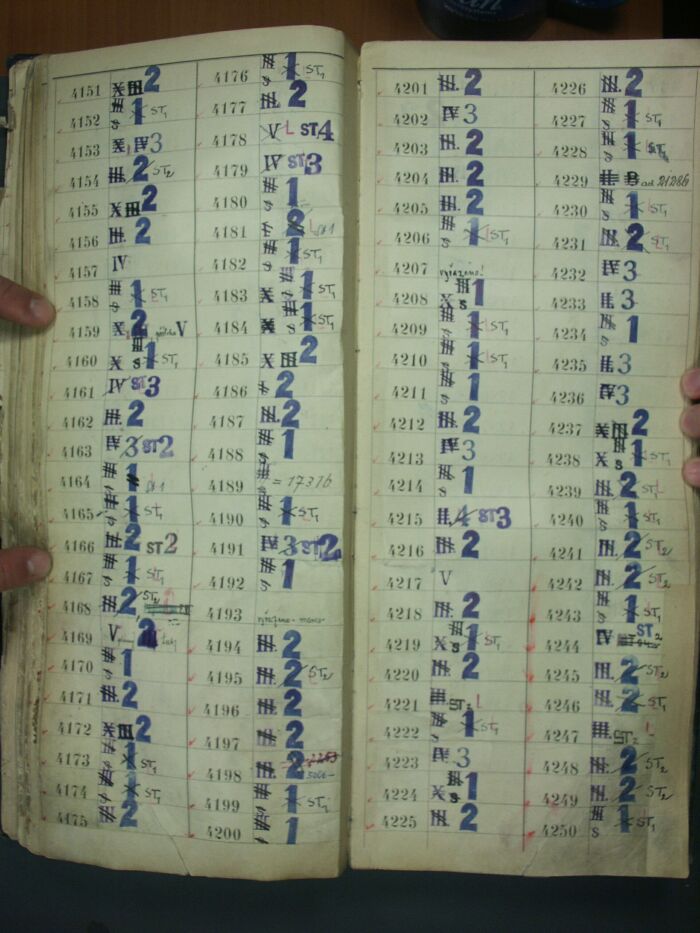 4151 X III 2
4152 1 ST1
4153 X IV 3
4154 III. 2 ST2
4155 X III 2
4156 III. 2
4157 IV
4158 1 ST1
4159 X 2 V
4160 X s 1 ST1
4161 IV ST 3
4162 III. 2
4163 IV 3 ST 2
4164 1
4165 1 ST1
4166 III 2 ST 2
4167 1 ST1
4168 III. 2 ST2
4169 V 2
4170 s 1
4171 III. 2
4172 X III 2
4173 1 ST1
4174 1 ST1
4175 III. 2
4176 s 1 ST1
4177 III. 2
4178 V L ST. 4
4179 IV ST 3
4180 s 1
4181 2
4182 s 1 ST1
4183 X s 1 ST1
4184 X s 1 ST1
4185 X III 2
4186 2
4187 III. 2
4188 s 1
4189 = 17316
4190 s 1 ST1
4191 IV 3 ST 2
4192 s 1
4193
4194 III. 2
4195 III. 2 ST2
4196 III. 2
4197 III. 2
4198 III. 2
4199 1 ST1
4200 1
4201 III. 2
4202 IV 3
4203 III. 2
4204 III. 2
4205 III. 2
4206 s 1 ST1
4207
4208 X s 1
4209 s 1 ST1
4210 s 1 ST1
4211 s 1
4212 III. 2
4213 IV 3
4214 s 1
4215 II. 4 ST 3
4216 III. 2
4217 V
4218 III. 2
4219 X s 1 ST1
4220 III. 2
4221 ST2 L
4222 s 1 ST1
4223 IV 3
4224 X s 1
4225 III. 2
4226 III. 2
4227 s 1 ST1
4228 s 1
4229 B ad 21286
4230 s 1 ST1
4231 III. 2 ST1
4232 IV 3
4233 II. 3
4234 s 1
4235 II. 3
4236 IV 3
4237 X III 2
4238 X s 1 ST1
4239 III. 2 ST1
4240 s 1 ST1
4241 III. 2 ST2
4242 III. 2 ST2
4243 s 1 ST1
4244 IV ST 2
4245 III. 2 ST2
4246 III. 2 ST1
4247 III. ST2
4248 III. 2 ST2
4249 III. 2 ST2
4250 s 1 ST1